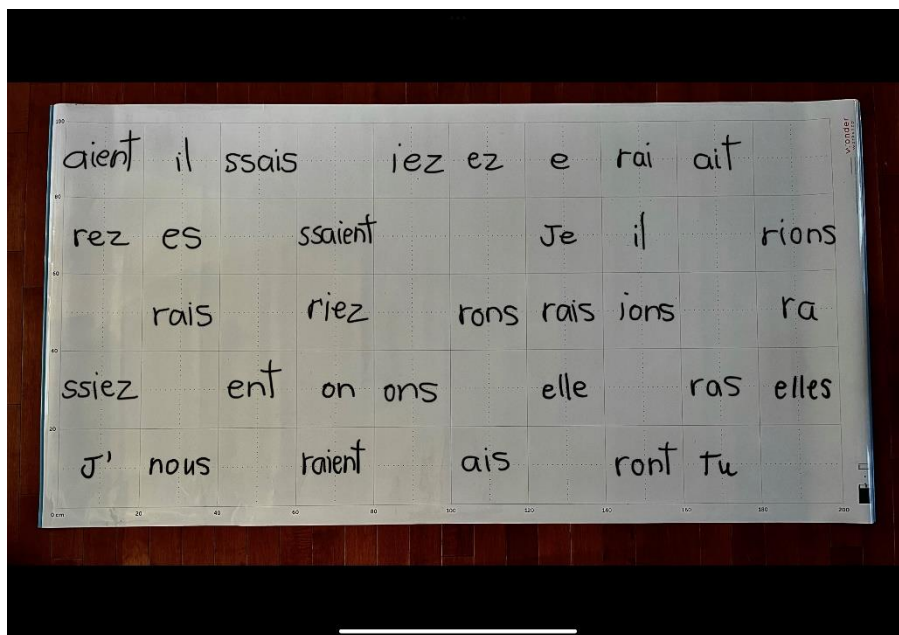 100
aient il ssais iez ez e rai ait
wonder
80
rez es ssaient Je il rions
60
rais riez rons rais ions ra
40
ssiez ent on ons elle ras elles
20
J' nous raient ais ront Tu
0 cm 20 40 60 80 100 120 140 160 180 200